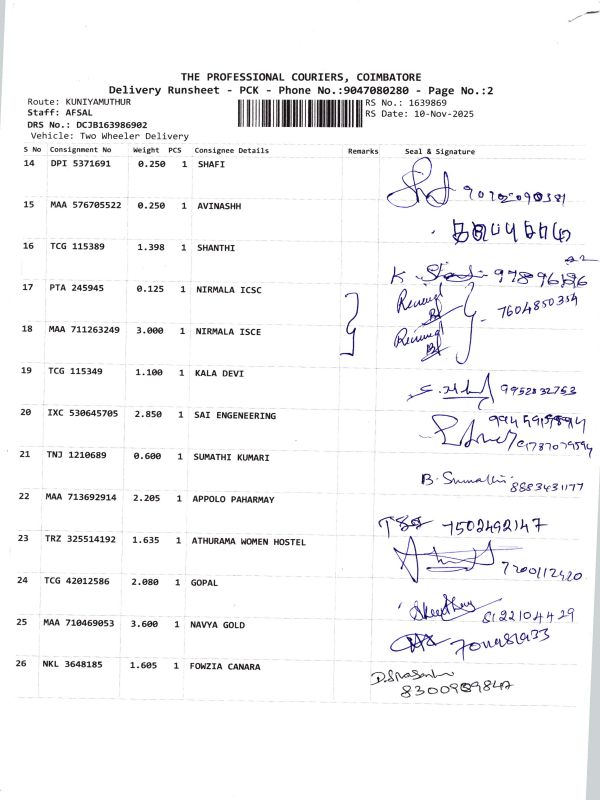 THE PROFESSIONAL COURIERS, COIMBATORE
Delivery Runsheet - PCK - Phone No.:9047080280 - Page No.:2
Route: KUNIYAMUTHUR RS No.: 1639869
Staff: AFSAL RS Date: 10-Nov-2025
DRS No.: DCJB163986902
Vehicle: Two Wheeler Delivery
S No Consignment No Weight PCS Consignee Details Remarks Seal & Signature
14 DPI 5371691 0.250 1 SHAFI
15 MAA 576705522 0.250 1 AVINASHH
16 TCG 115389 1.398 1 SHANTHI
K
17 PTA 245945 0.125 1 NIRMALA ICSC
7604850354
18 MAA 711263249 3.000 1 NIRMALA ISCE
19 TCG 115349 1.100 1 KALA DEVI
9952832753
20 IXC 530645705 2.850 1 SAI ENGENEERING
21 TNJ 1210689 0.600 1 SUMATHI KUMARI
B. Sumathi 8883431177
22 MAA 713692914 2.205 1 APPOLO PAHARMAY
7502492147
23 TRZ 325514192 1.635 1 ATHURAMA WOMEN HOSTEL
7200112420
24 TCG 42012586 2.080 1 GOPAL
8122104429
25 MAA 710469053 3.600 1 NAVYA GOLD
26 NKL 3648185 1.605 1 FOWZIA CANARA